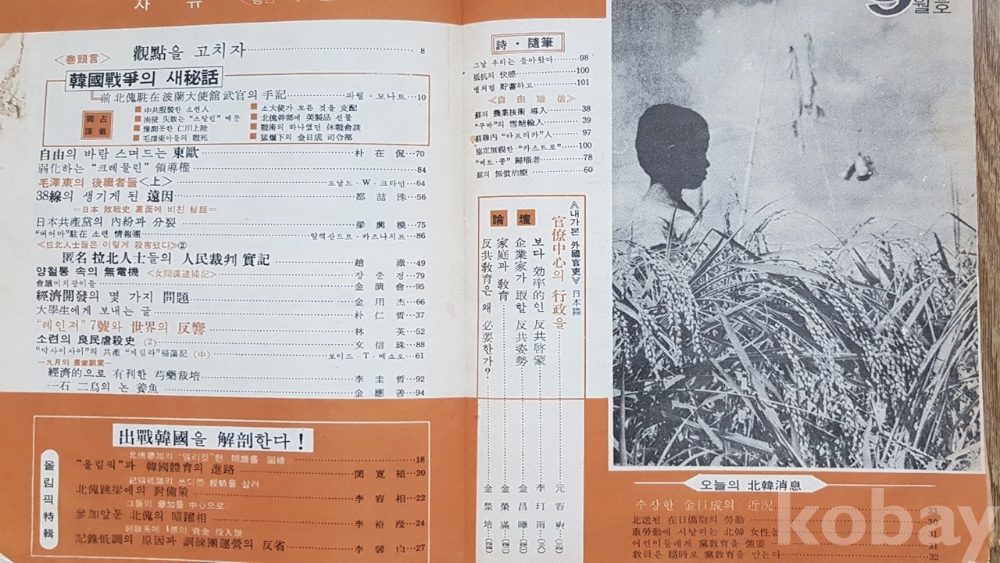 자 유
9월호
<卷頭言> 觀點을 고치자 8
韓國戰爭의 새秘話
前 北傀駐在波蘭大使舘 武官의 手記 파월·모나트…10
獨占譯載
■ 中共服裝한 소련人
■ 南侵 失敗는 "스탈린" 때문
■ 豫測못한 仁川上陸
■ 毛澤東아들의 戰死
■ 소大使가 모든 것을 支配
■ 北傀幹部에 美製品 선물
■ 戰術의 하나였던 休戰會談
■ 猛爆下의 金日成 司令部
自由의 바람 스며드는 東歐 朴在侃…70
弱化하는 "크레믈린" 領導權 84
毛澤東의 後繼者들<上> 도날드·W·크라인…64
38線의 생기게 된 遠因 都喆洙…56
=日本 敗戰史 裏面에 비친 秘話=
日本共產黨의 內紛과 分裂 梁興模…75
"버어마"駐在 소련 情報團 알렉산드르·카즈나치프…86
<拉北人士들은 이렇게 殺害됐다>②
匿名 拉北人士들의 人民裁判 實記 趙澈…49
양철통 속의 無電機 <女間諜逮捕記> 장준경…79
會議미치광이들 金演會…95
經濟開發의 몇 가지 問題 金用杰…66
大學生에게 보내는 글 朴仁哲…37
"레인저" 7號와 世界의 反響 林英…52
소련의 良民虐殺史 (2) 文信珠…88
"막사이사이"의 共產 "게릴라"掃蕩記 (中) 보이드·T·베쇼오…61
—九月의 農家副業—
經濟的으로 有利한 芍藥栽培 李圭哲…92
一石 二鳥의 논 養魚 金應善…94
詩·隨筆
그날 우리는 돌아왔다 98
抵抗의 快感 100
벌처럼 貯蓄하고 101
<自由短信>
蘇의 農業技術 導入 38
"쿠바"의 雪糖輸入 39
蘇聯內 "아프리카"人 97
協定無視한 "카스트로" 100
78
蘇의 無償治療 60
論壇
《내가본 外國官吏》 日本篇
官僚中心의 行政을 元容奭
보다 效率的인 反共啓蒙
企業家가 取할 反共姿勢
家庭과 敎育
反共敎育은 왜 必要한가?
올림픽特輯
出戰韓國을 解剖한다!
18
"올림픽"과 韓國體育의 進路 閔寬植…20
北傀跳梁에의 對備策 李容相…22
그들의 參加를 中心으로
參加앞둔 北傀의 暗躍相 24
記錄低調의 原因과 訓練團運營의 反省 李馨白…27
오늘의 北韓消息
수상한 金日成의 近況
北送된 在日僑胞의 勞動 30
重勞動에 시달리는 北韓 女性들 31
어린이들에게 黨敎育을 強要 31
敎員은 隨時로 黨敎育을 받는다 32
kobay